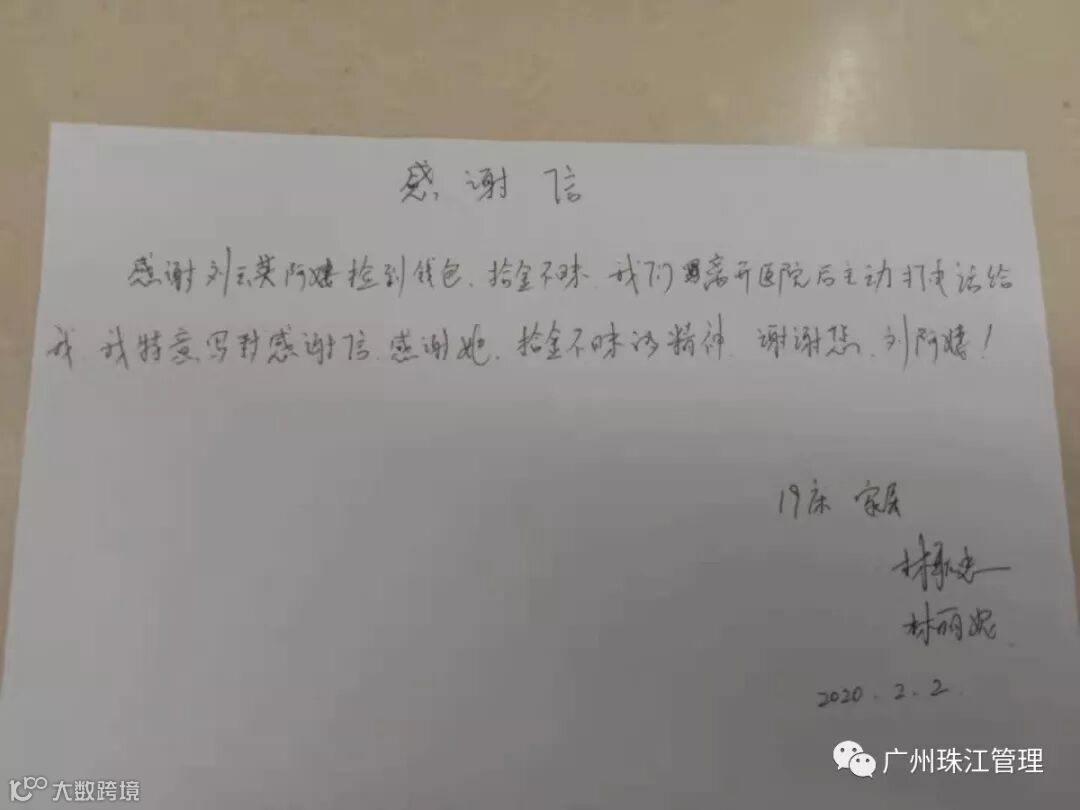 感谢信
感谢刘云英阿姨捡到钱包、拾金不昧、我们离开医院后主动打电话给
我、我特意写封感谢信、感谢她、拾金不昧的精神、谢谢您、刘阿姨！
19床 家属
林
林丽妮
2020.2.2.
广州珠江管理
大数跨境